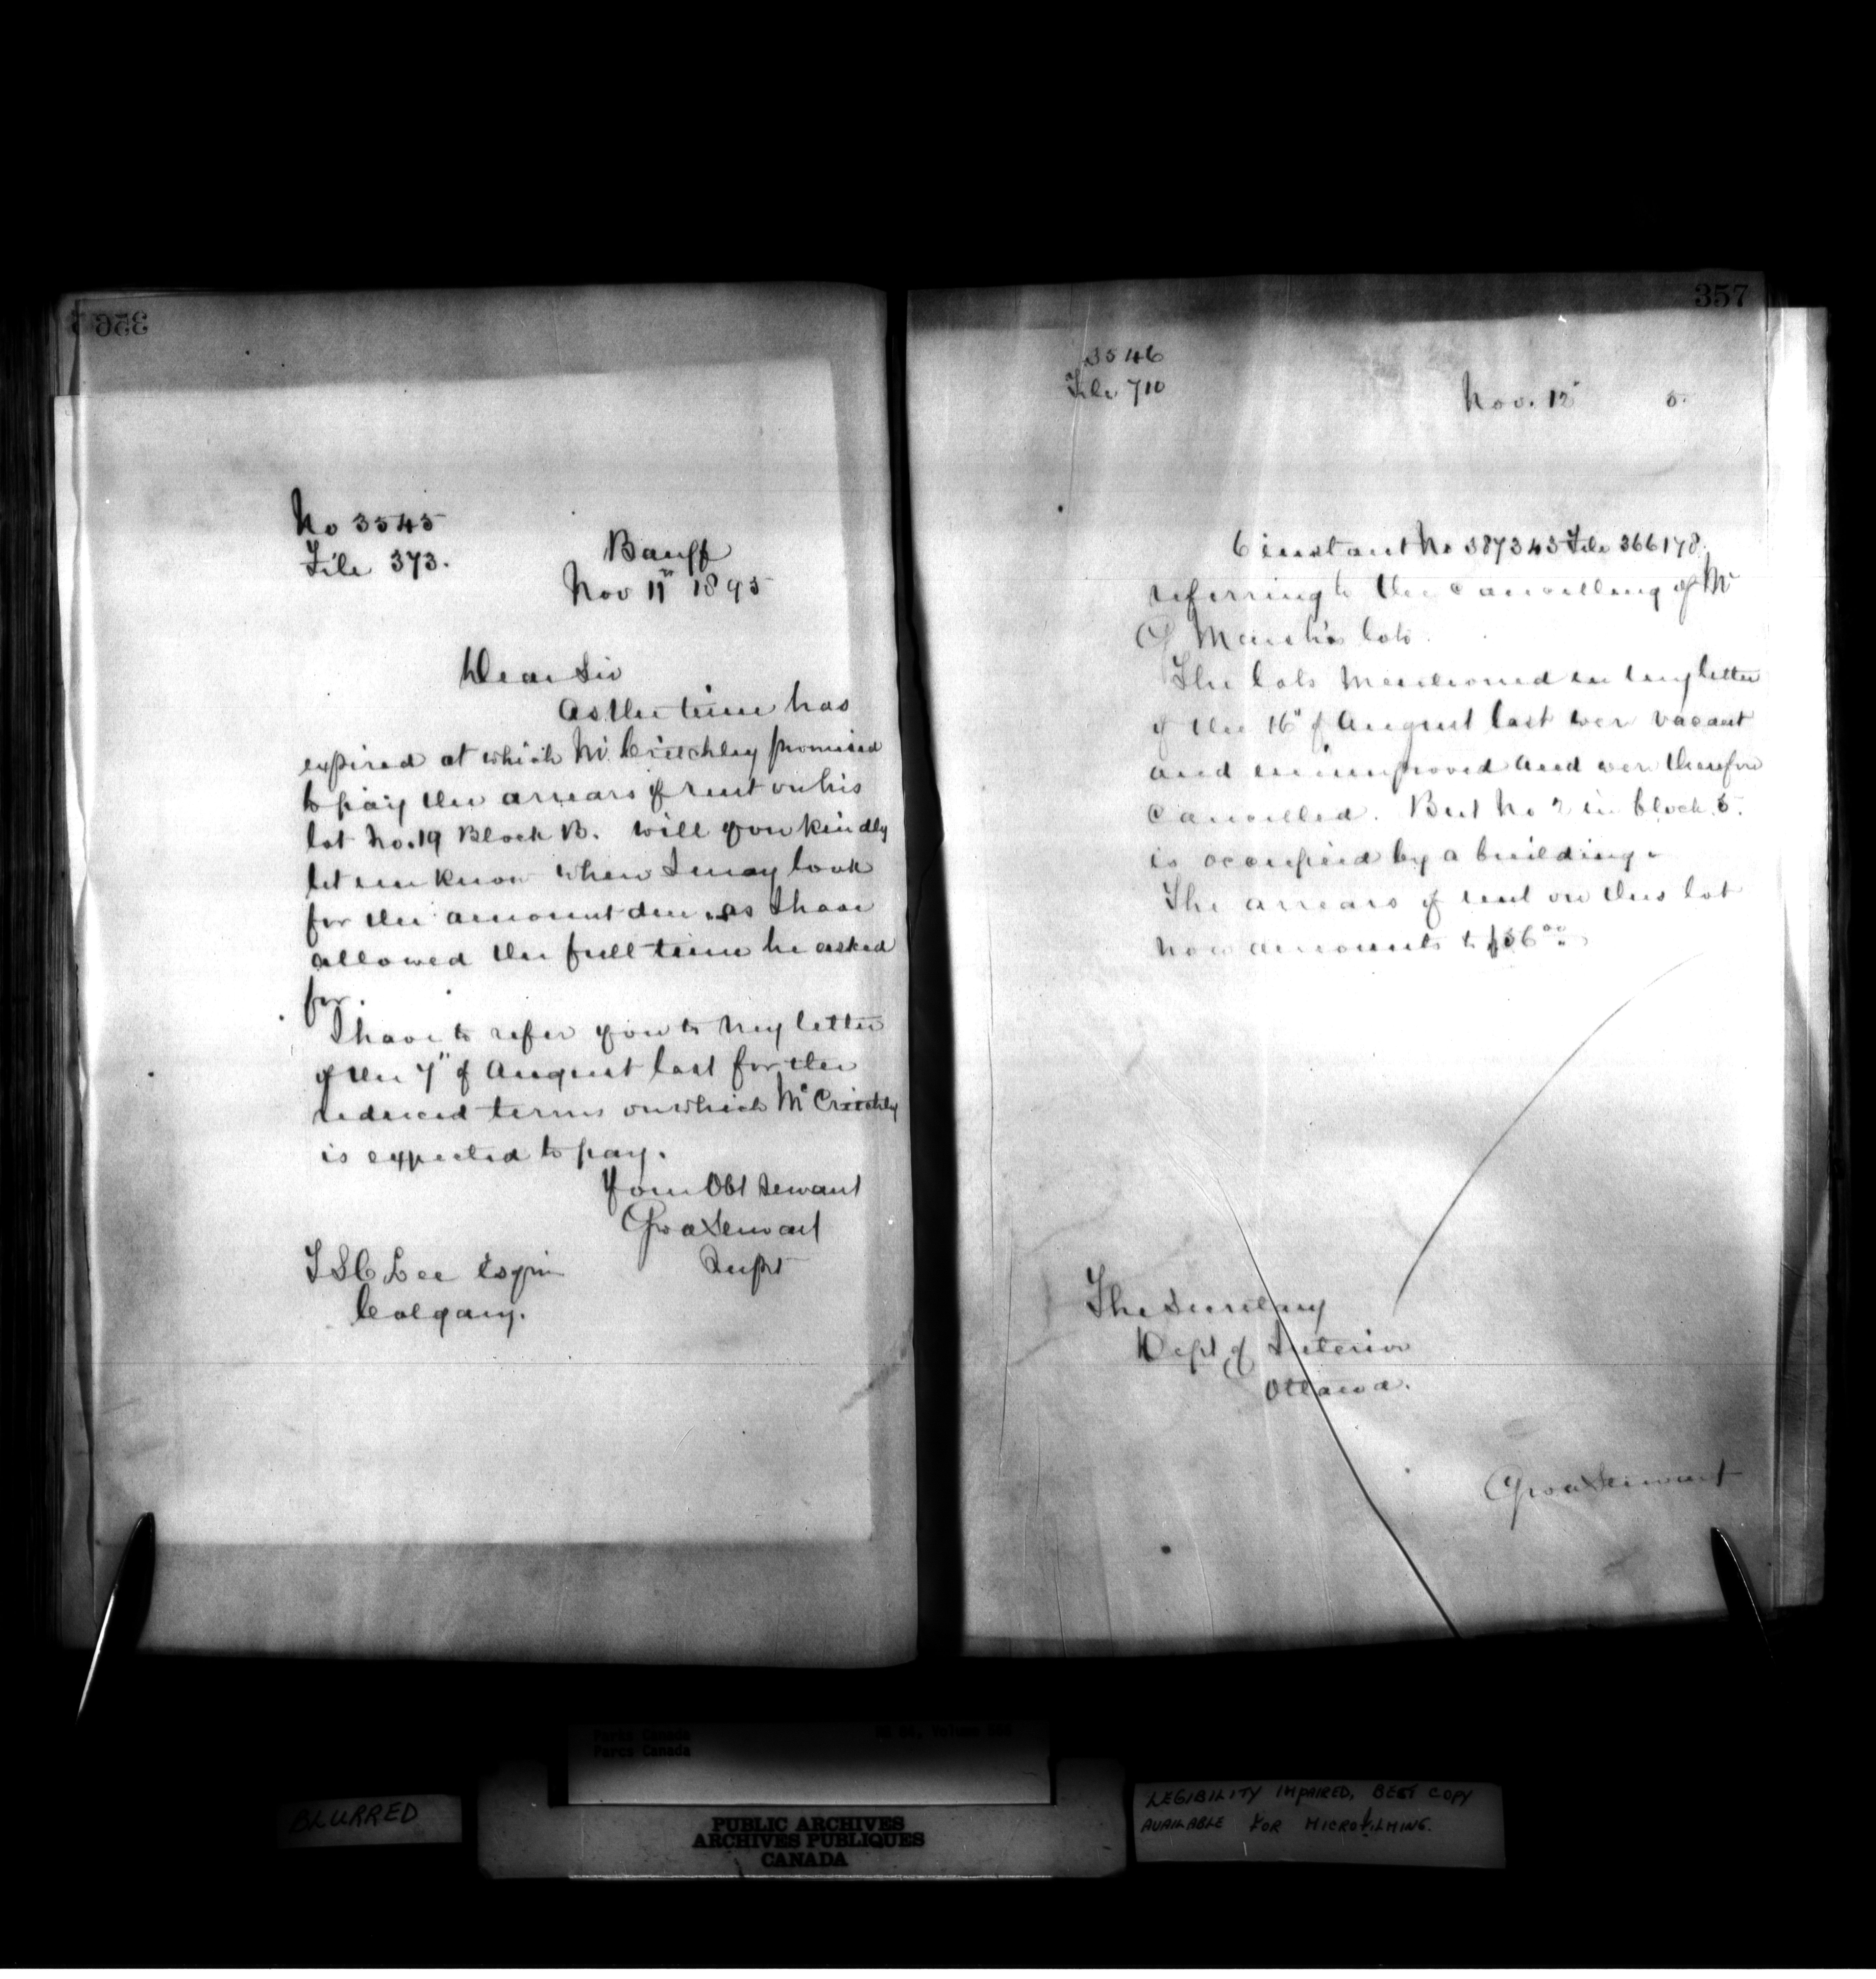 356
No 3545
File 373.
Banff
Nov 11th 1895
Dear Sir
As the time has
expired at which Mr. Critchley promised
to pay the arrears of rent on his
lot No. 19 Block B. will you kindly
let me know when I may look
for the amount due, as I have
allowed the full time he asked
for.
I have to refer you to my letter
of the 7" of August last for the
reduced terms on which Mr Critchley
is expected to pay.
Your Obt Servant
Geo A Stewart
Supt
T S C Lee Esquire
Calgary.
357
3546
File 710
Nov. 12" 5.
6 instant No 387343 File 366178.
referring to the cancelling of Mr
G Marsh's lots.
The lots mentioned in my letter
of the 16" of August last were vacant
and unimproved and were therefore
cancelled. But No 2 in block 5.
is occupied by a building.
The arrears of rent on this lot
now amounts to $56.00
The Secretary
Dept of Interior
Ottawa.
Geo A Stewart
Parks Canada
Parcs Canada
BLURRED
PUBLIC ARCHIVES
ARCHIVES PUBLIQUES
CANADA
LEGIBILITY IMPAIRED, BEST COPY
AVAILABLE FOR MICROFILMING.